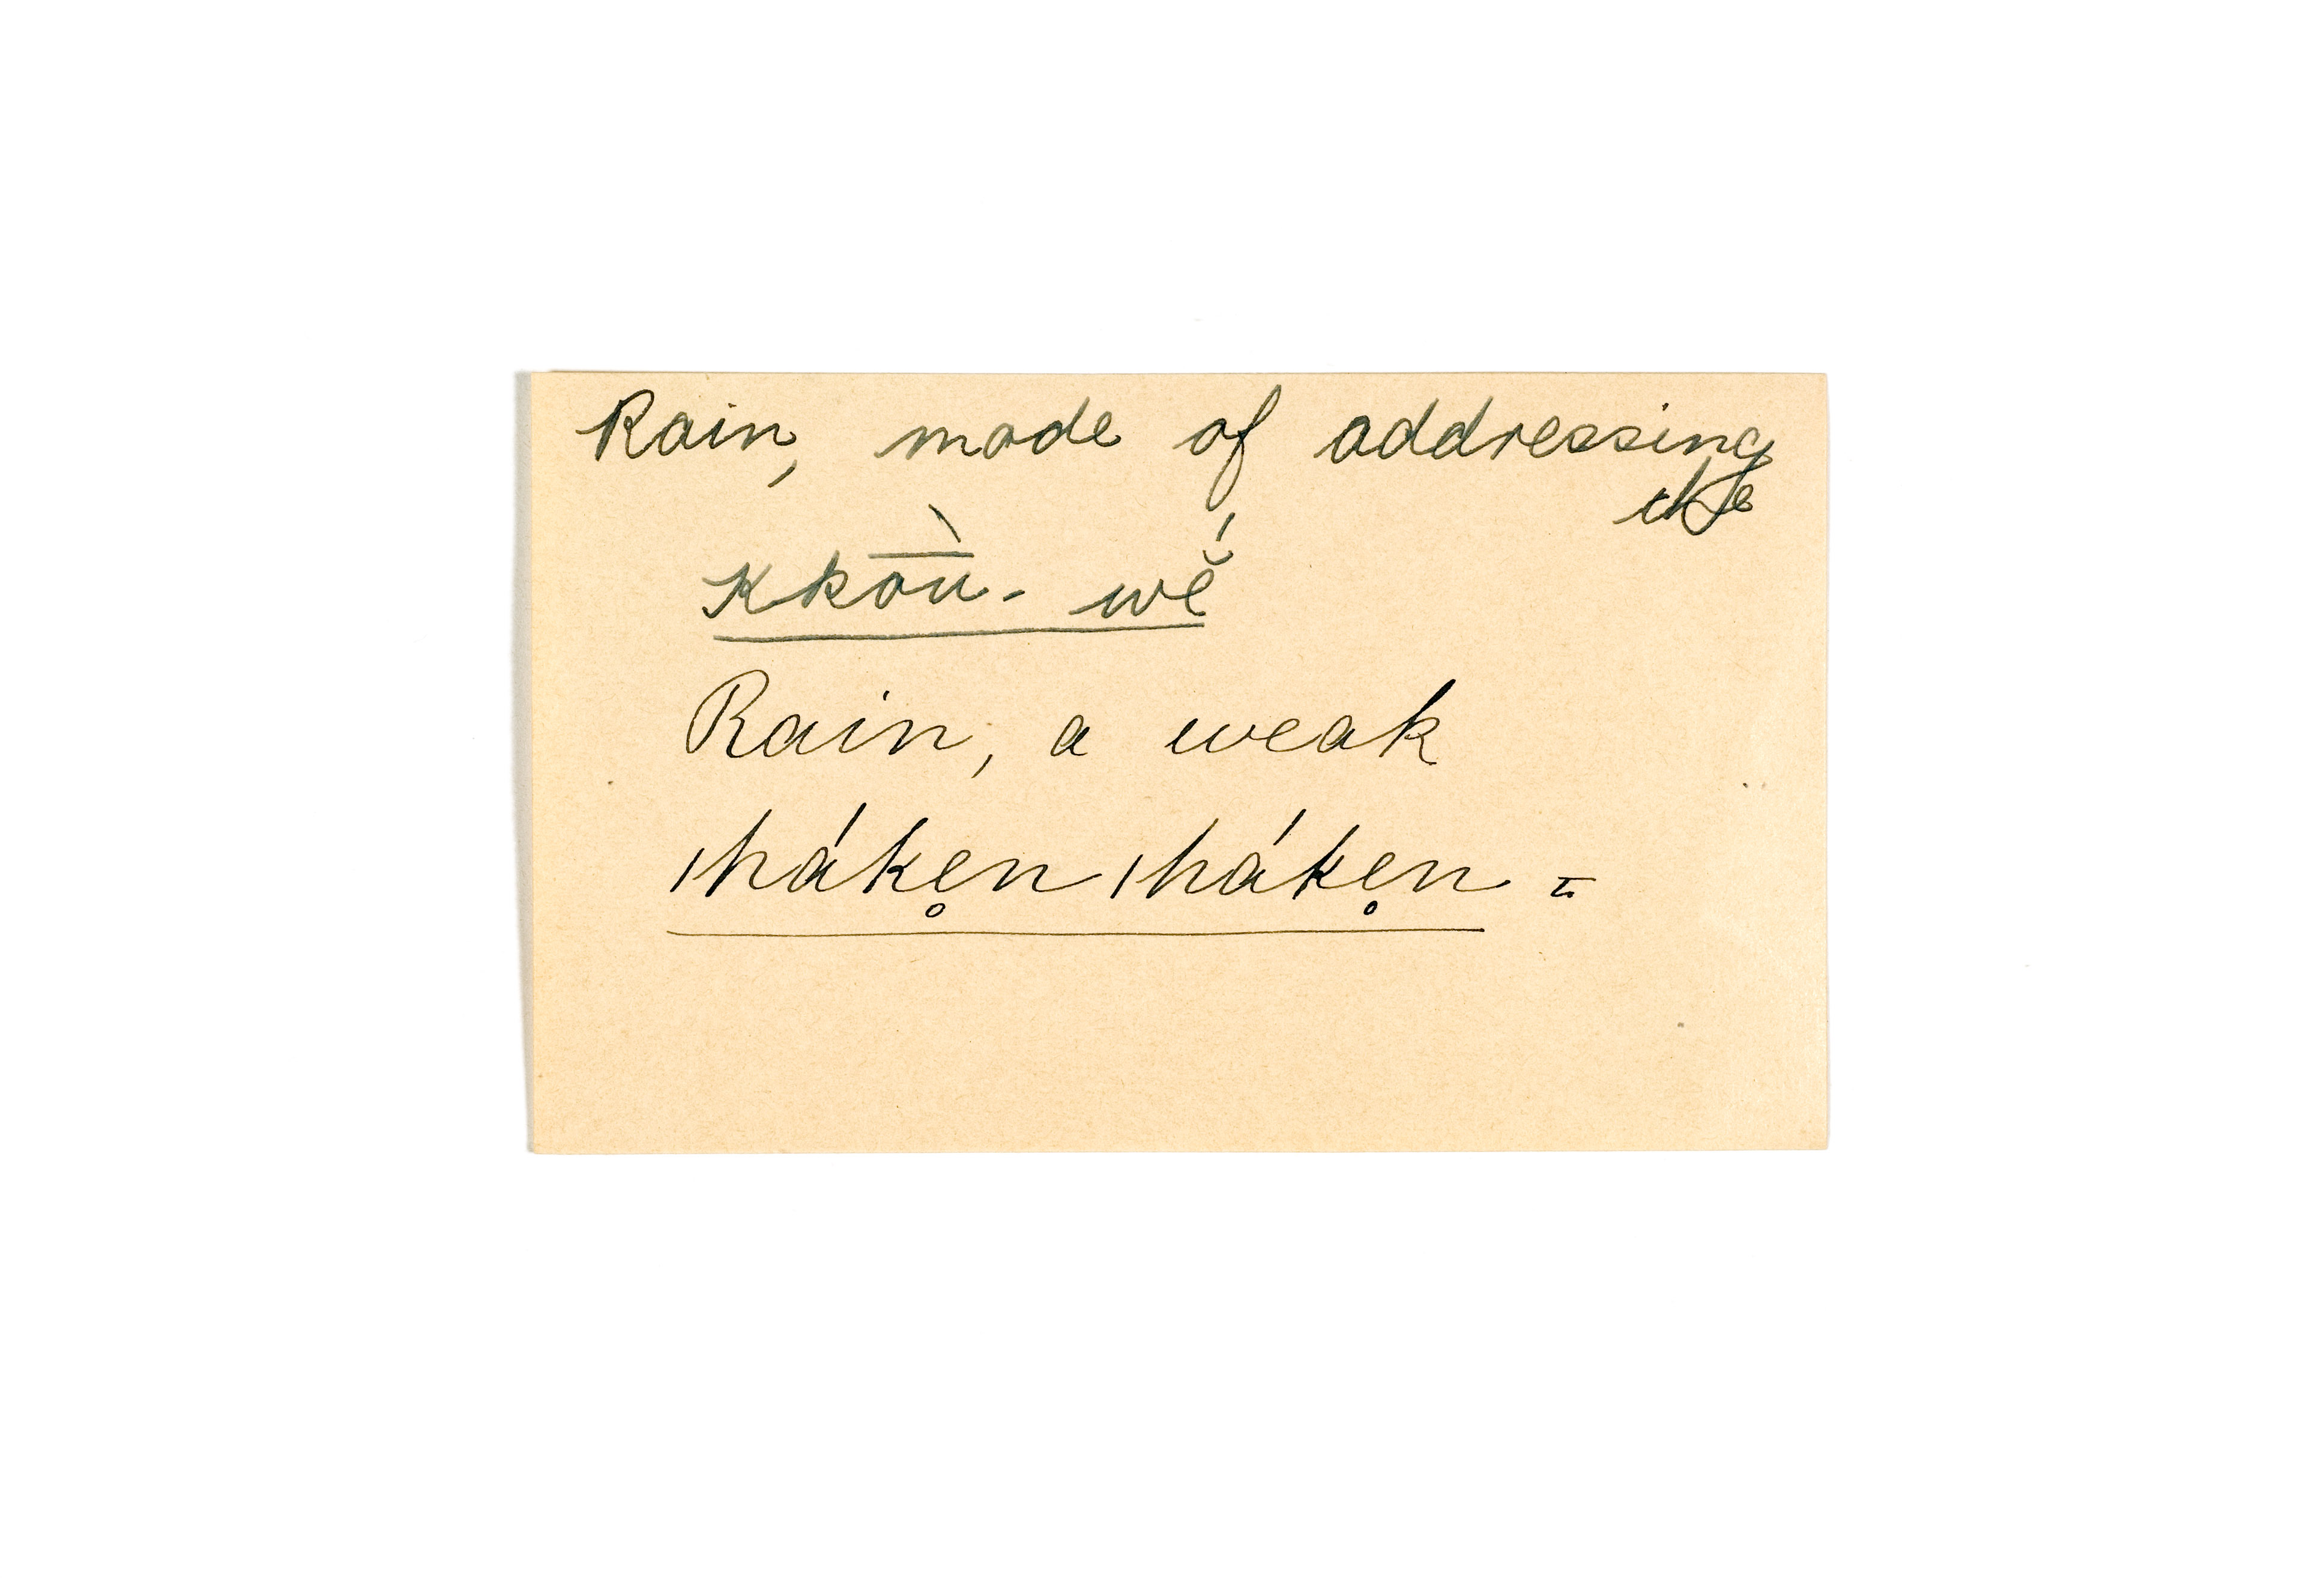 Rain, mode of addressing
the
Kko͞ù-wĕ́
Rain, a weak
ǀháke̥n ǀháke̥n =